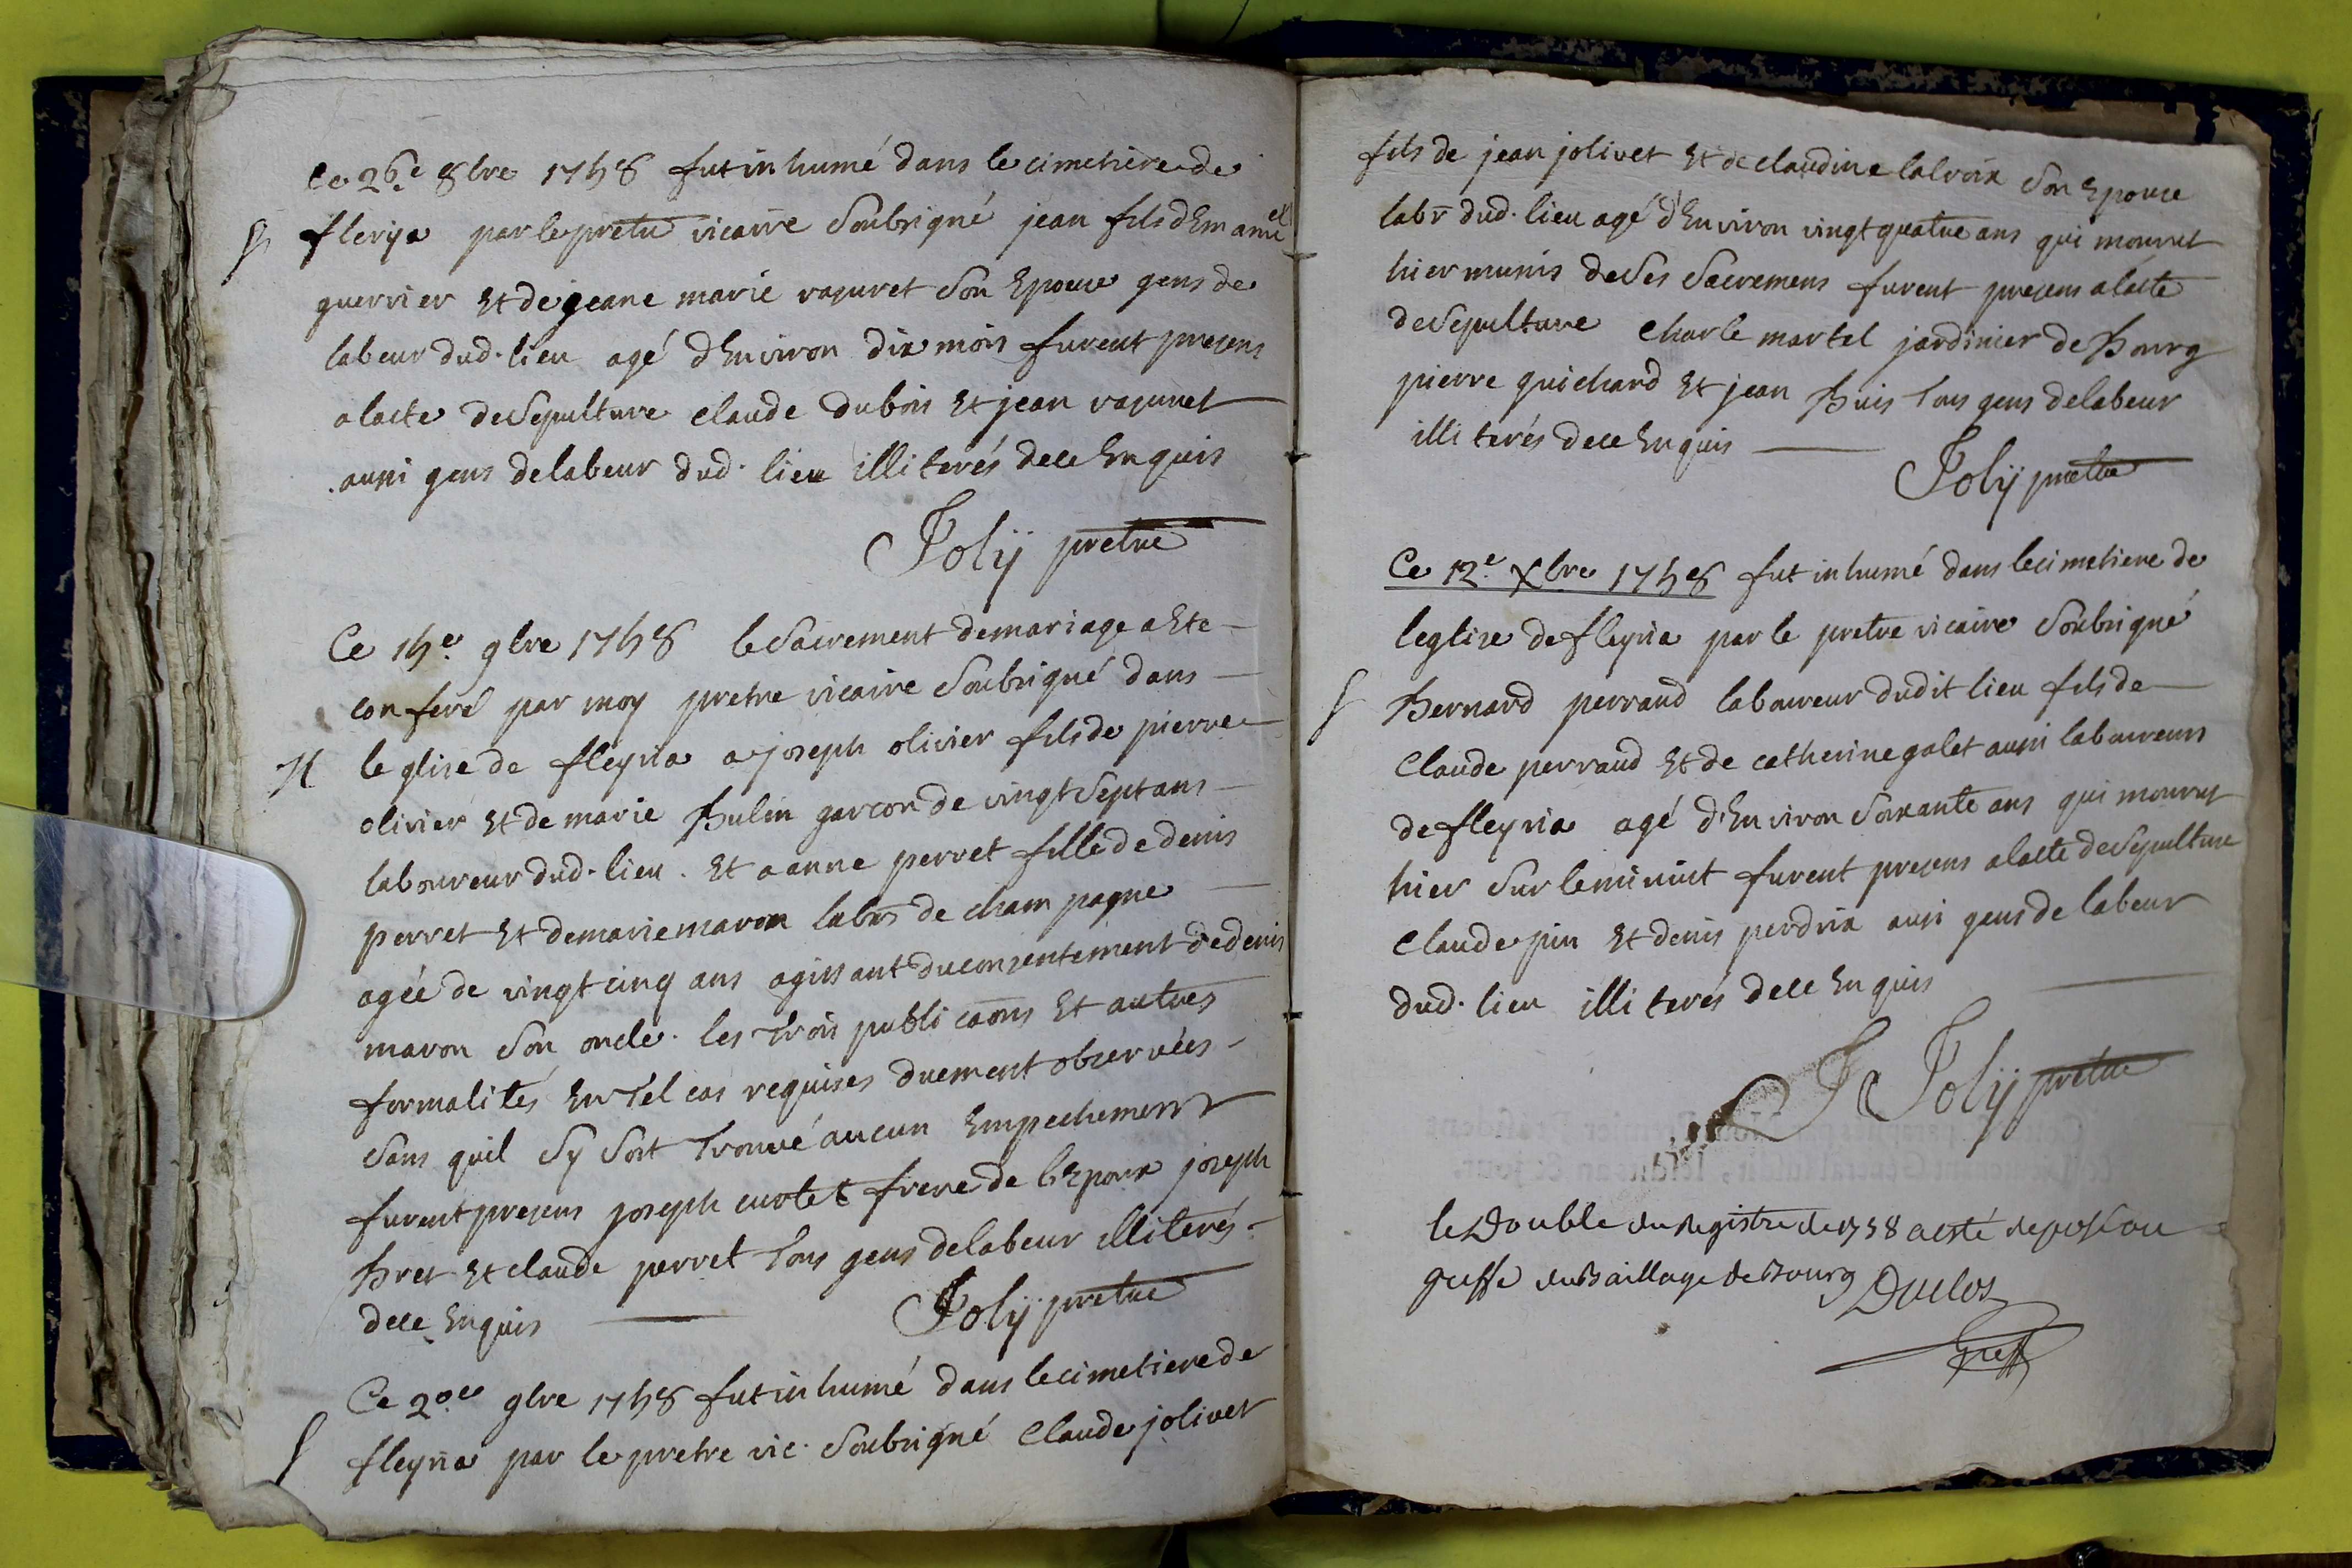 Ce 26.e 8bre 1758 fut inhumé dans le cimetiere de
S fleriya par le pretre vicaire Soubsigné jean fils dEmanuel
guerrier Et de jeane marie rasuret Son Epouse gens de
labeur dud. lieu agé dEnviron dix mois furent presens
alacte de Sepulture claude dubois Et jean rasuret
aussi gens de labeur dud. lieu illiterés de ce Enquis
Joly prêtre
Ce 15.e 9bre 1758 le Sacrement de mariage a Eté
conferé par moy pretre vicaire Soubsigné dans
M leglise de fleyria a joseph olivier fils de pierre
olivier Et de marie hulin garcon de vingt Sept ans
laboureur dud. lieu. Et a anne perret fille de denis
perret Et de marie maron labrs de champagne
agée de vingt cinq ans agissant du consentement de denis
maron Son oncle. les trois publicaons Et autres
formalités En tel cas requises duement observées
Sans quil Sy Soit trouvé aucun Empechement
furent presens joseph curtet frere de lEpoux joseph
Bret Et claude perret tous gens de labeur illiterés
de ce Enquis Joly prêtre
Ce 20.e 9bre 1758 fut inhumé dans le cimetiere de
S fleyria par le pretre vic. Soubsigné Claude jolivet
fils de jean jolivet Et de claudine lacroix Son Epouse
labr dud. lieu agé dEnviron vingt quatre ans qui mourut
hier munis de Ses Sacremens furent presens alacte
de Sepulture charle martel jardinier de Bourg
pierre guichard Et jean Buis tous gens de labeur
illiterés de ce Enquis
Joly prêtre
Ce 12.e Xbre 1758 fut inhumé dans le cimetiere de
leglise de fleyria par le pretre vicaire Soubsigné
S Bernard perraud laboureur dudit lieu fils de
Claude perraud Et de catherine galet aussi laboureurs
de fleyria agé d'Environ Soixante ans qui mourut
hier Sur le minuit furent presens alacte de Sepulture
Claude pin Et denis perdrix aussi gens de labeur
dud. lieu illiterés de ce Enquis
Joly prêtre
le Double du Registre de 1758 a esté deposé au
greffe du Baillage de Bourg Duclos
greff